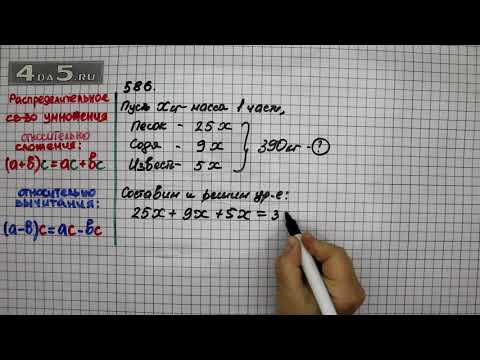 4DA5.RU
Распределительное
св-во умножения
относительно
сложения:
(a+b)c=ac+bc
относительно
вычитания:
(a-b)c=ac-bc
586.
Пусть х кг - масса 1 части,
Песок - 25х
Сода - 9х
Известь - 5х
390кг - ?
Составим и решим ур-е:
25х + 9х + 5х = 3